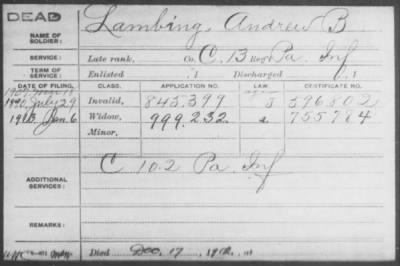 DEAD
NAME OF SOLDIER: Lambing, Andrew B
SERVICE: Late rank, Co. C, 13 Reg't Pa. Inf
TERM OF SERVICE: Enlisted , 1 Discharged , 1
DATE OF FILING. CLASS. APPLICATION NO. LAW. CERTIFICATE NO.
1890 July 29 Invalid, 845.399 596.802
1913 Jan. 6 Widow, 999.232 755784
Minor,
ADDITIONAL SERVICES: C 102 Pa Inf
REMARKS:
Died Dec. 17, 1912, at